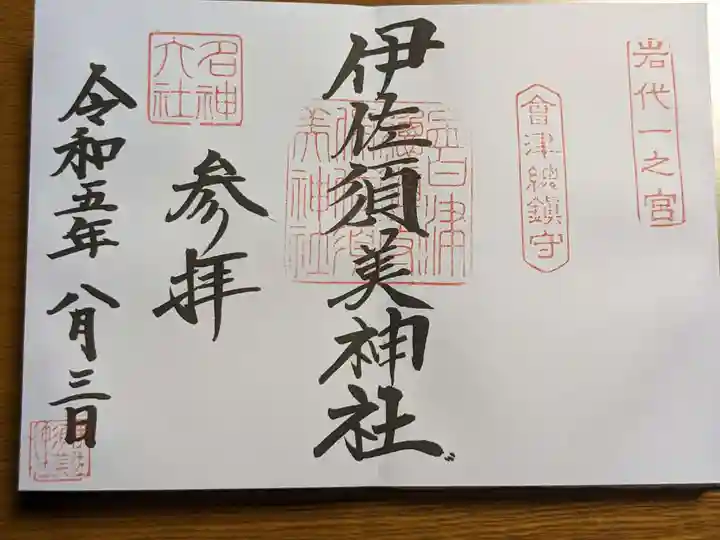 岩代一之宮
會津総鎮守
伊佐須美神社
参拝
名神
大社
令和五年八月三日